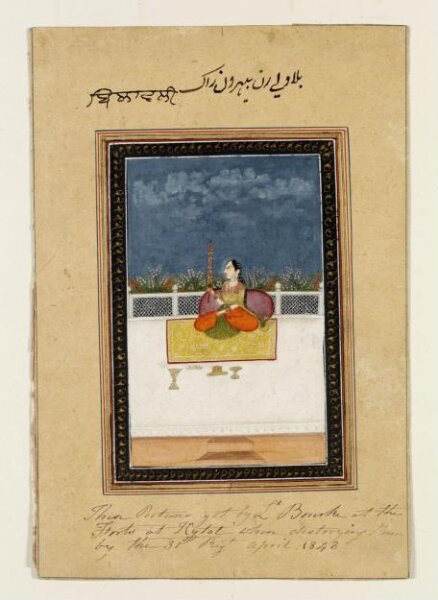 بلاولی رن بیهرون راک
ਬਿਲਾਵਲੀ
These Pictures got by Lt Bourke at the
Forts at Kytal when destroying them
by the 31st Regt April 1843